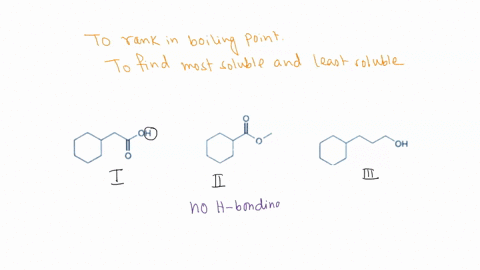 To rank in boiling point.
To find most soluble and least soluble
OH
O
O
O
OH
I
II
III
no H-bonding